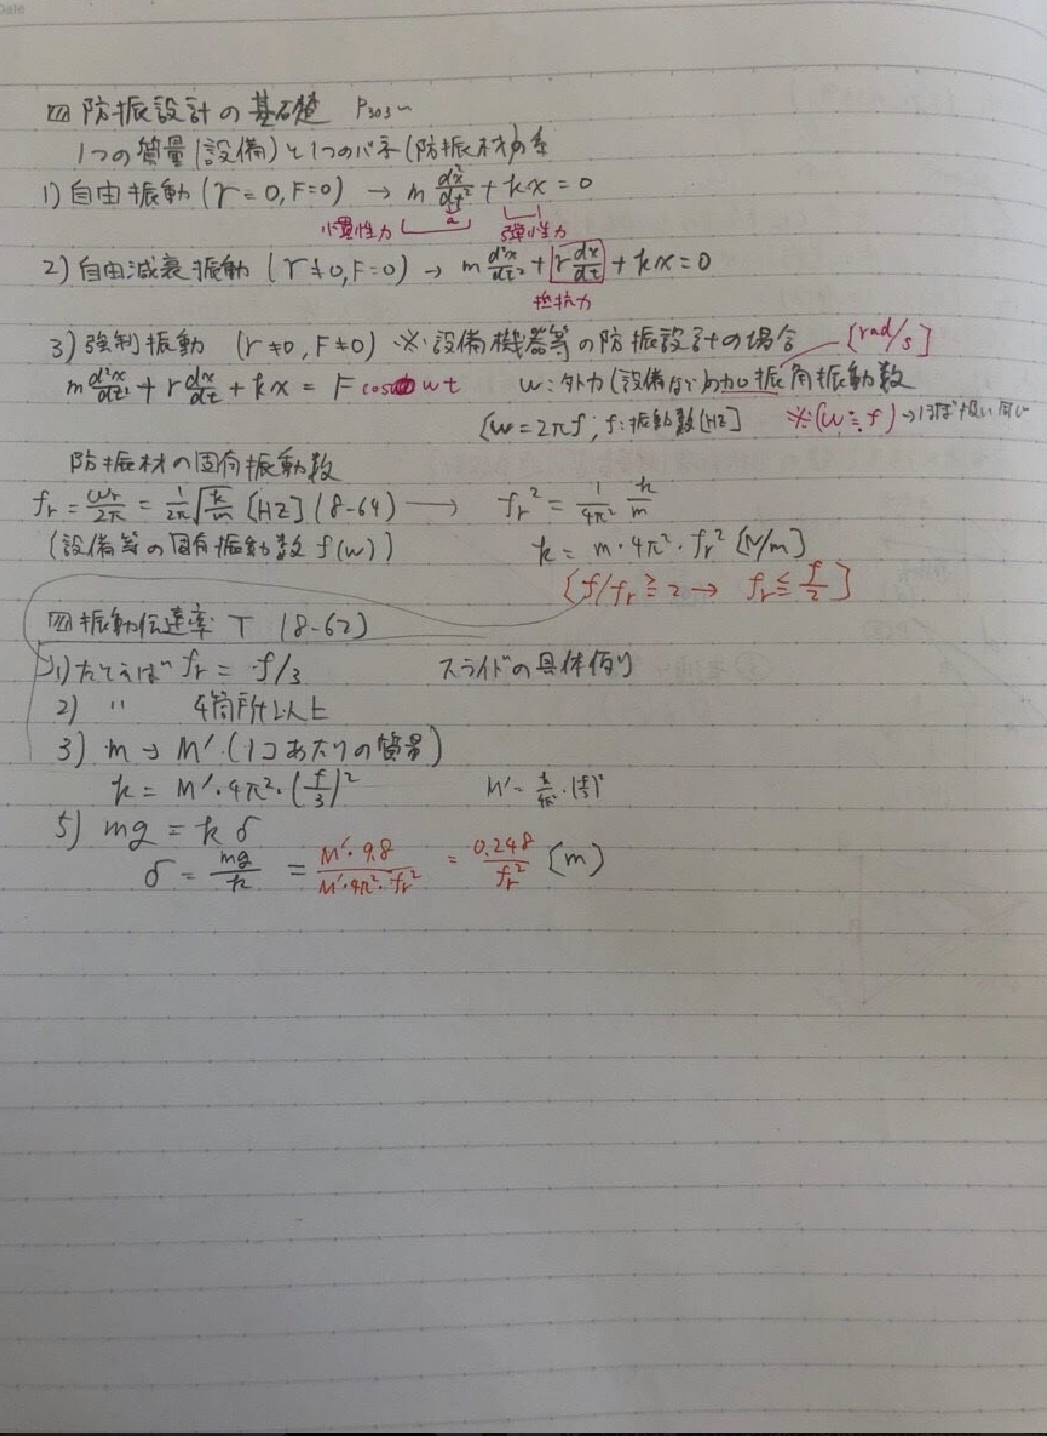 Date
四 防振設計の基礎 P303〜
1つの質量(設備)と1つのバネ(防振材)の系
1) 自由振動 (r = 0, F=0) → m d²x/dt² + kx = 0
慣性力 a 弾性力
2) 自由減衰振動 (r ≠ 0, F = 0) → m d²x/dt² + r dx/dt + kx = 0
抵抗力
3) 強制振動 (r ≠ 0, F ≠ 0) ※設備機器等の防振設計の場合 [rad/s]
m d²x/dt² + r dx/dt + kx = F cos wt w : 外力(設備など)の加振角振動数
[w = 2πf ; f : 振動数[HZ] ※(w ≒ f) → ほぼ扱い同じ
防振材の固有振動数
fr = wr/2π = 1/2π √k/m [HZ] (8-64) → fr² = 1/4π² k/m
(設備等の固有振動数 f(w)) k = m・4π²・fr² [N/m]
[f/fr ≧ 2 → fr ≦ f/2]
四 振動伝達率 T (8-62)
1) たとえば fr = f/3 スライドの具体例り
2) 〃 4箇所以上
3) m → M′ (1コあたりの質量)
k = M′・4π²・(f/3)² M′ =
5) mg = kδ
δ = mg/k = M′・9.8/M′・4π²・fr² = 0.248/fr² (m)